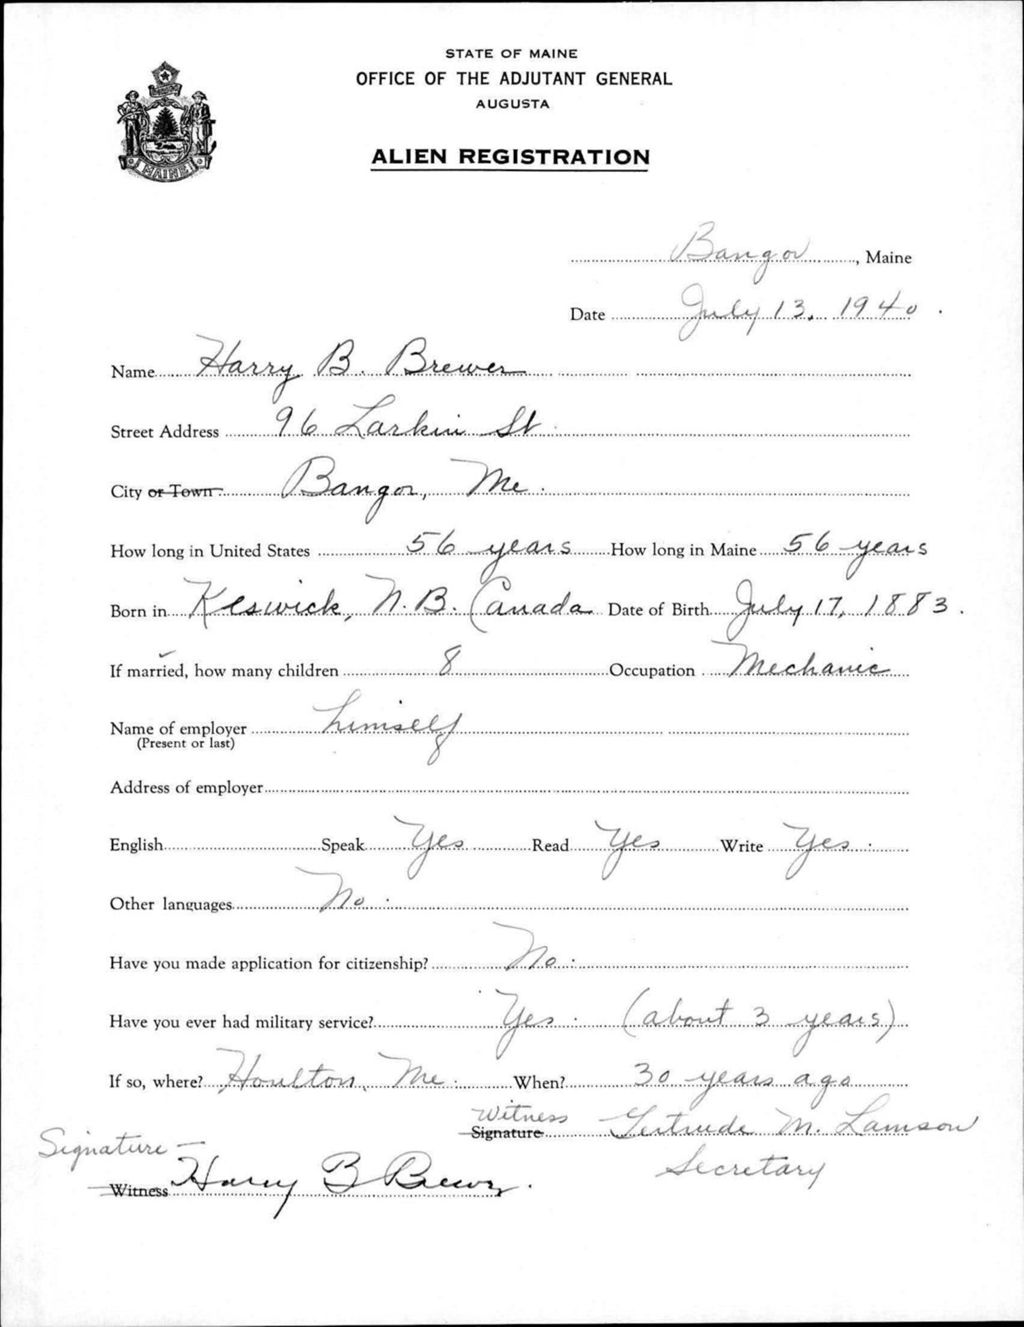 STATE OF MAINE
OFFICE OF THE ADJUTANT GENERAL
AUGUSTA
ALIEN REGISTRATION
MAINE
Bangor, Maine
Date July 13, 1940.
Name Harry B. Brewer
Street Address 96 Larkin St.
City or Town Bangor, Me.
How long in United States 56 years How long in Maine 56 years
Born in Keswick, N.B. Canada Date of Birth July 17, 1883.
If married, how many children 8 Occupation Mechanic
Name of employer himself
(Present or last)
Address of employer
English Speak Yes Read Yes Write Yes.
Other languages No.
Have you made application for citizenship? No.
Have you ever had military service? Yes. (about 3 years)
If so, where? Houlton, Me. When? 30 years ago
Witness
Signature Gertrude M. Lamson
Secretary
Signature —
Witness Harry B Brewer.